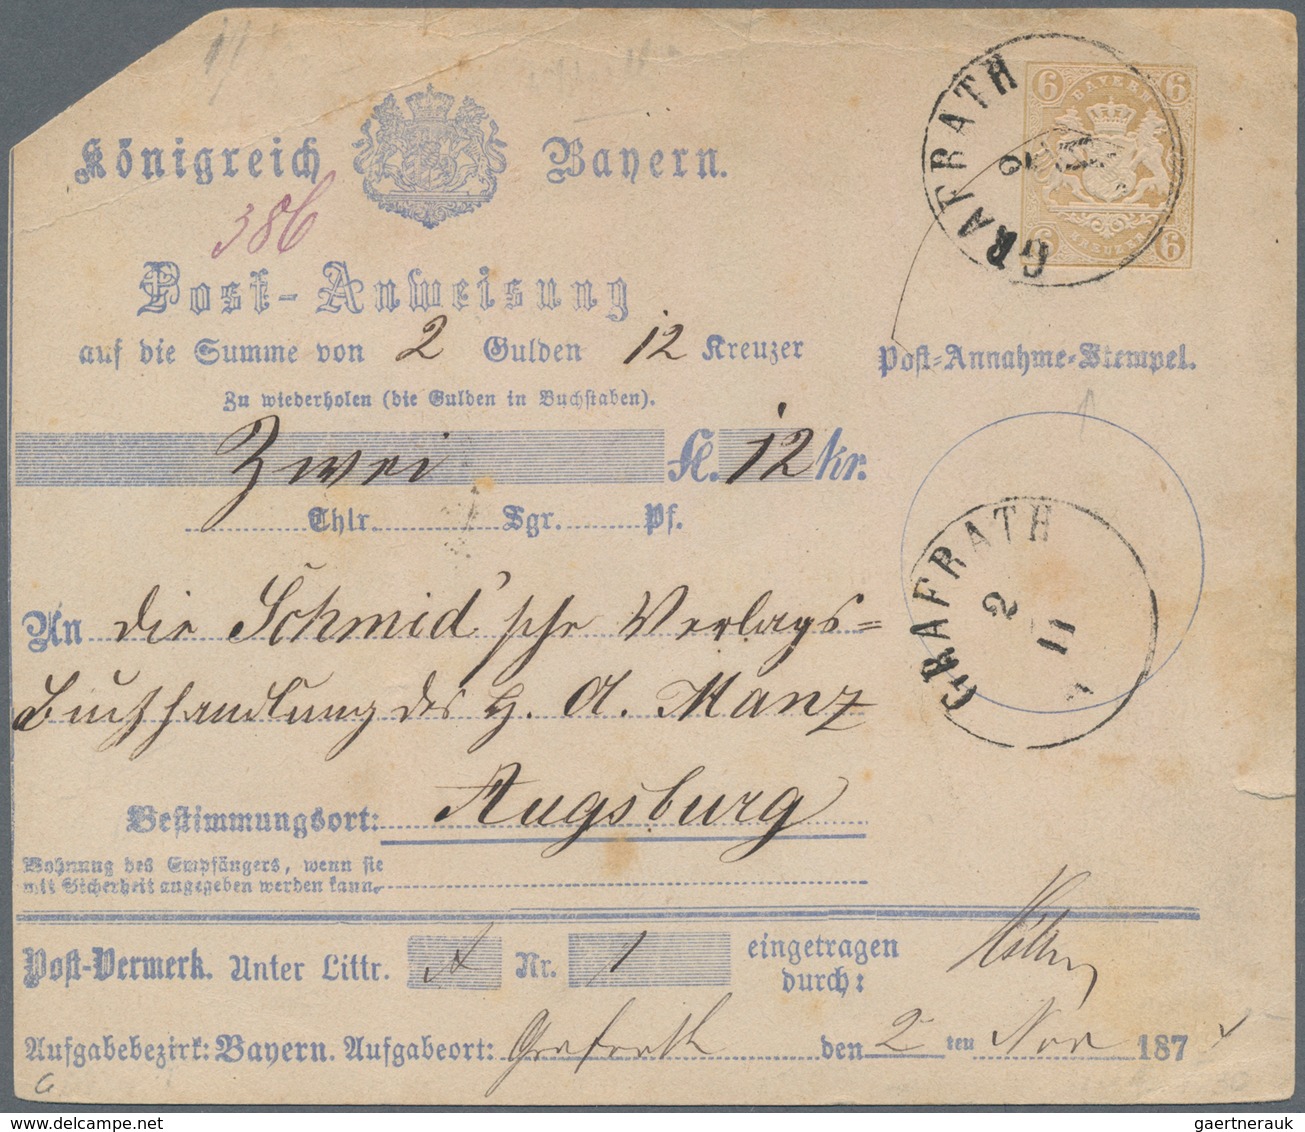 Königreich Bayern.
386
6 BAYERN 6
6 KREUZER 6
GRAFRATH
2
11
Post-Anweisung
auf die Summe von 2 Gulden 12 Kreuzer
Post-Annahme-Stempel.
Zu wiederholen (die Gulden in Buchstaben).
Zwei fl. 12 kr.
Thlr. Sgr. Pf.
GRAFRATH
2
11
An die Schmid'sche Verlags=
Buchhandlung des H. A. Manz
Bestimmungsort: Augsburg
Wohnung des Empfängers, wenn sie
mit Sicherheit angegeben werden kann.
Post-Vermerk. Unter Littr. A Nr. 1 eingetragen
durch:
Aufgabebezirk: Bayern. Aufgabeort: Grafrath den 2 ten Nov 187
gaertnerauk